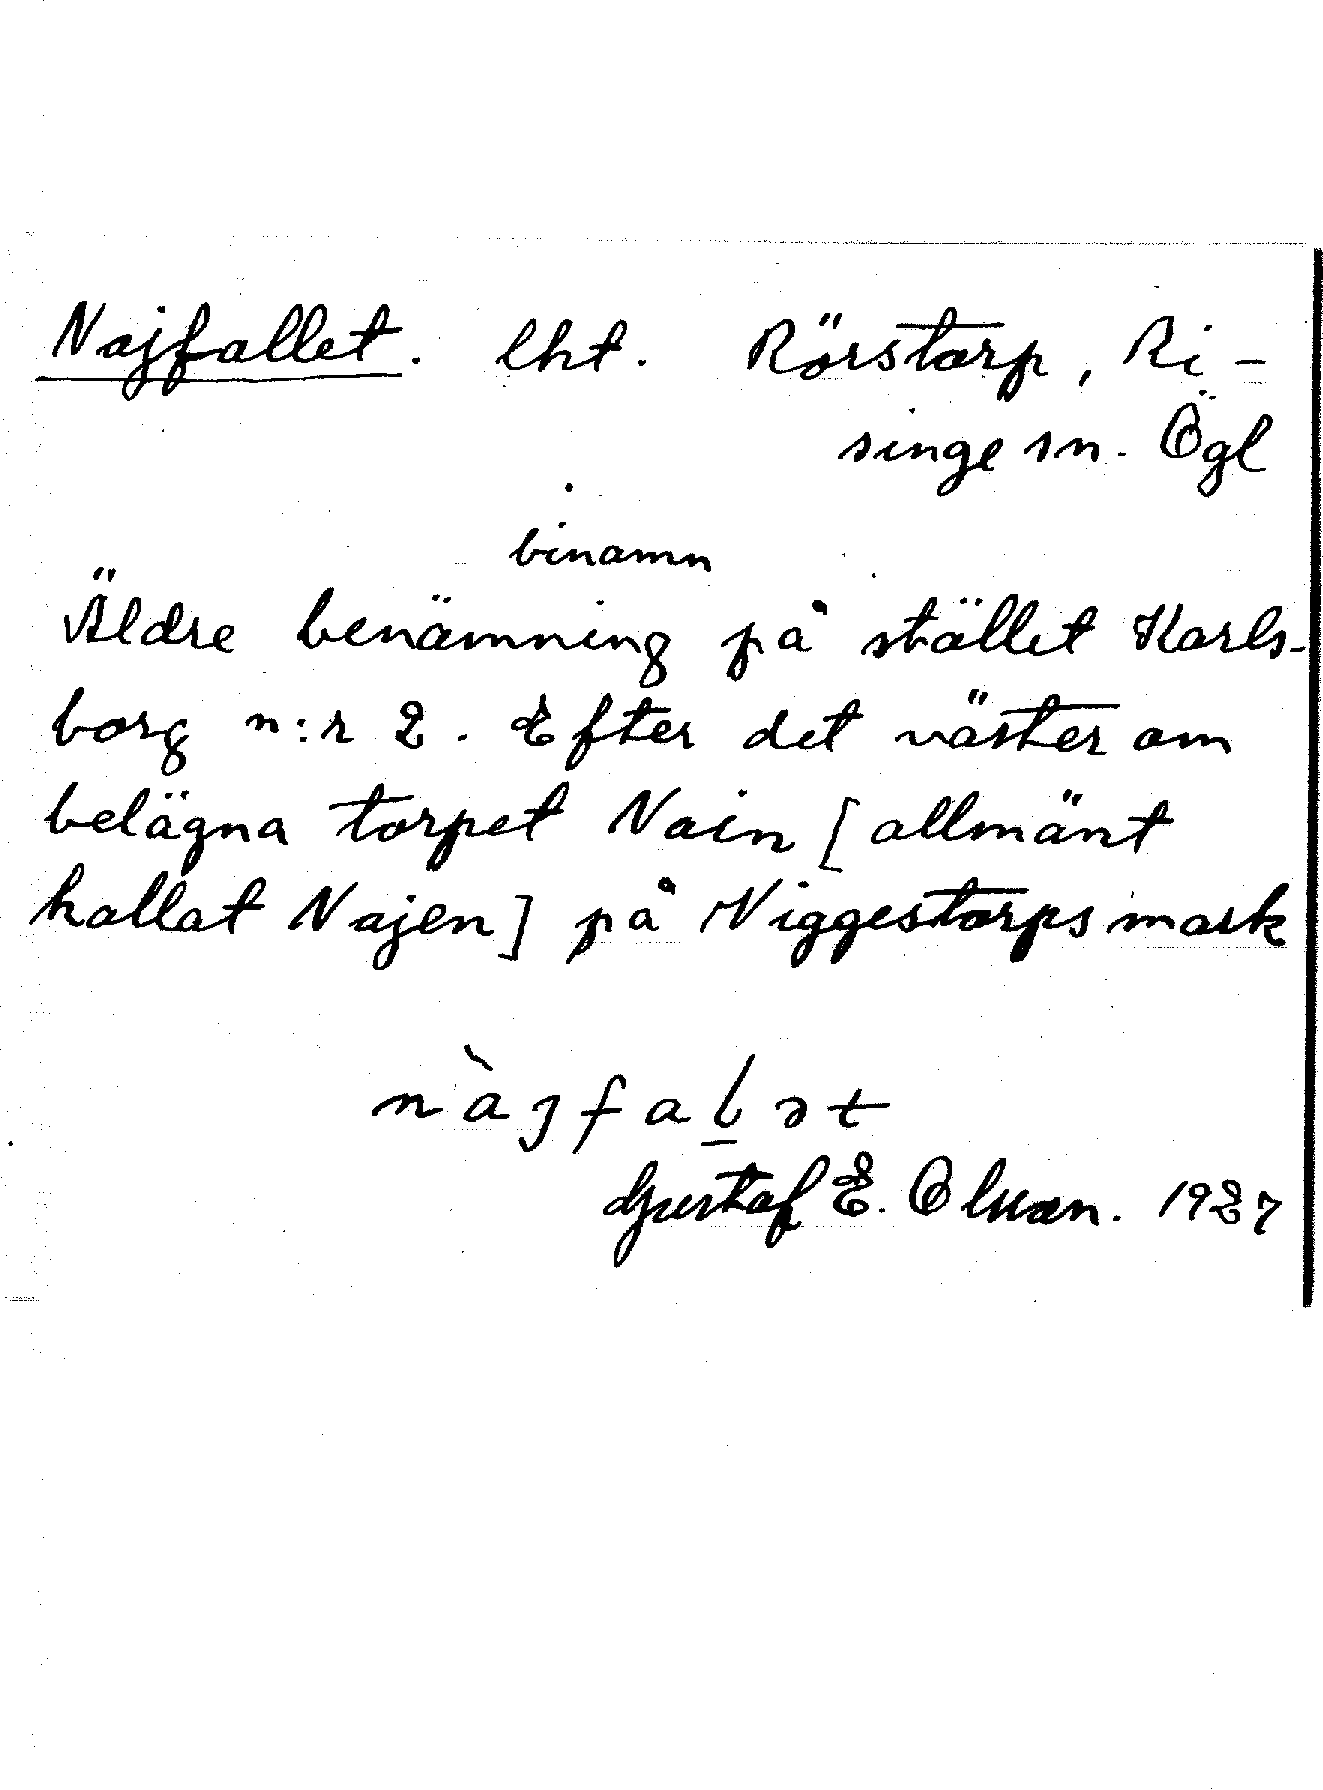 Najfallet. lht. Rörstorp, Ri-
singe sn. Ögl
binamn
Äldre benämning på stället Karls-
borg n:r 2. Efter det väster om
belägna torpet Nain [allmänt
kallat Najen] på Niggestorps mark
nàjfalət
Gustaf E. Olsson. 1927